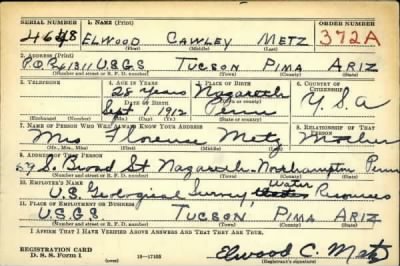 SERIAL NUMBER 1. NAME (Print) ORDER NUMBER
4648 ELWOOD CAWLEY METZ 372A
(First) (Middle) (Last)
2. ADDRESS (Print)
U.S.G.S TUCSON PIMA ARIZ
(Number and street or R. F. D. number) (Town) (County) (State)
3. TELEPHONE 4. AGE IN YEARS 5. PLACE OF BIRTH 6. COUNTRY OF CITIZENSHIP
28 years Nazareth
DATE OF BIRTH (Town or county)
Sept 1912 Penn U.S.A
(Exchange) (Number) (Mo.) (Day) (Yr.) (State or country)
7. NAME OF PERSON WHO WILL ALWAYS KNOW YOUR ADDRESS 8. RELATIONSHIP OF THAT PERSON
Mrs Florence Metz Mother
(Mr., Mrs., Miss) (First) (Middle) (Last)
9. ADDRESS OF THAT PERSON
59 S. Broad St Nazareth Northampton Penn
(Number and street or R. F. D. number) (Town) (County) (State)
10. EMPLOYER'S NAME
U.S. Geological Survey, Water Resources
11. PLACE OF EMPLOYMENT OR BUSINESS
U.S.G.S TUCSON PIMA ARIZ
(Number and street or R. F. D. number) (Town) (County) (State)
I AFFIRM THAT I HAVE VERIFIED ABOVE ANSWERS AND THAT THEY ARE TRUE.
REGISTRATION CARD
D. S. S. Form 1 (over) 16—17105 Elwood C. Metz
(Registrant's signature)